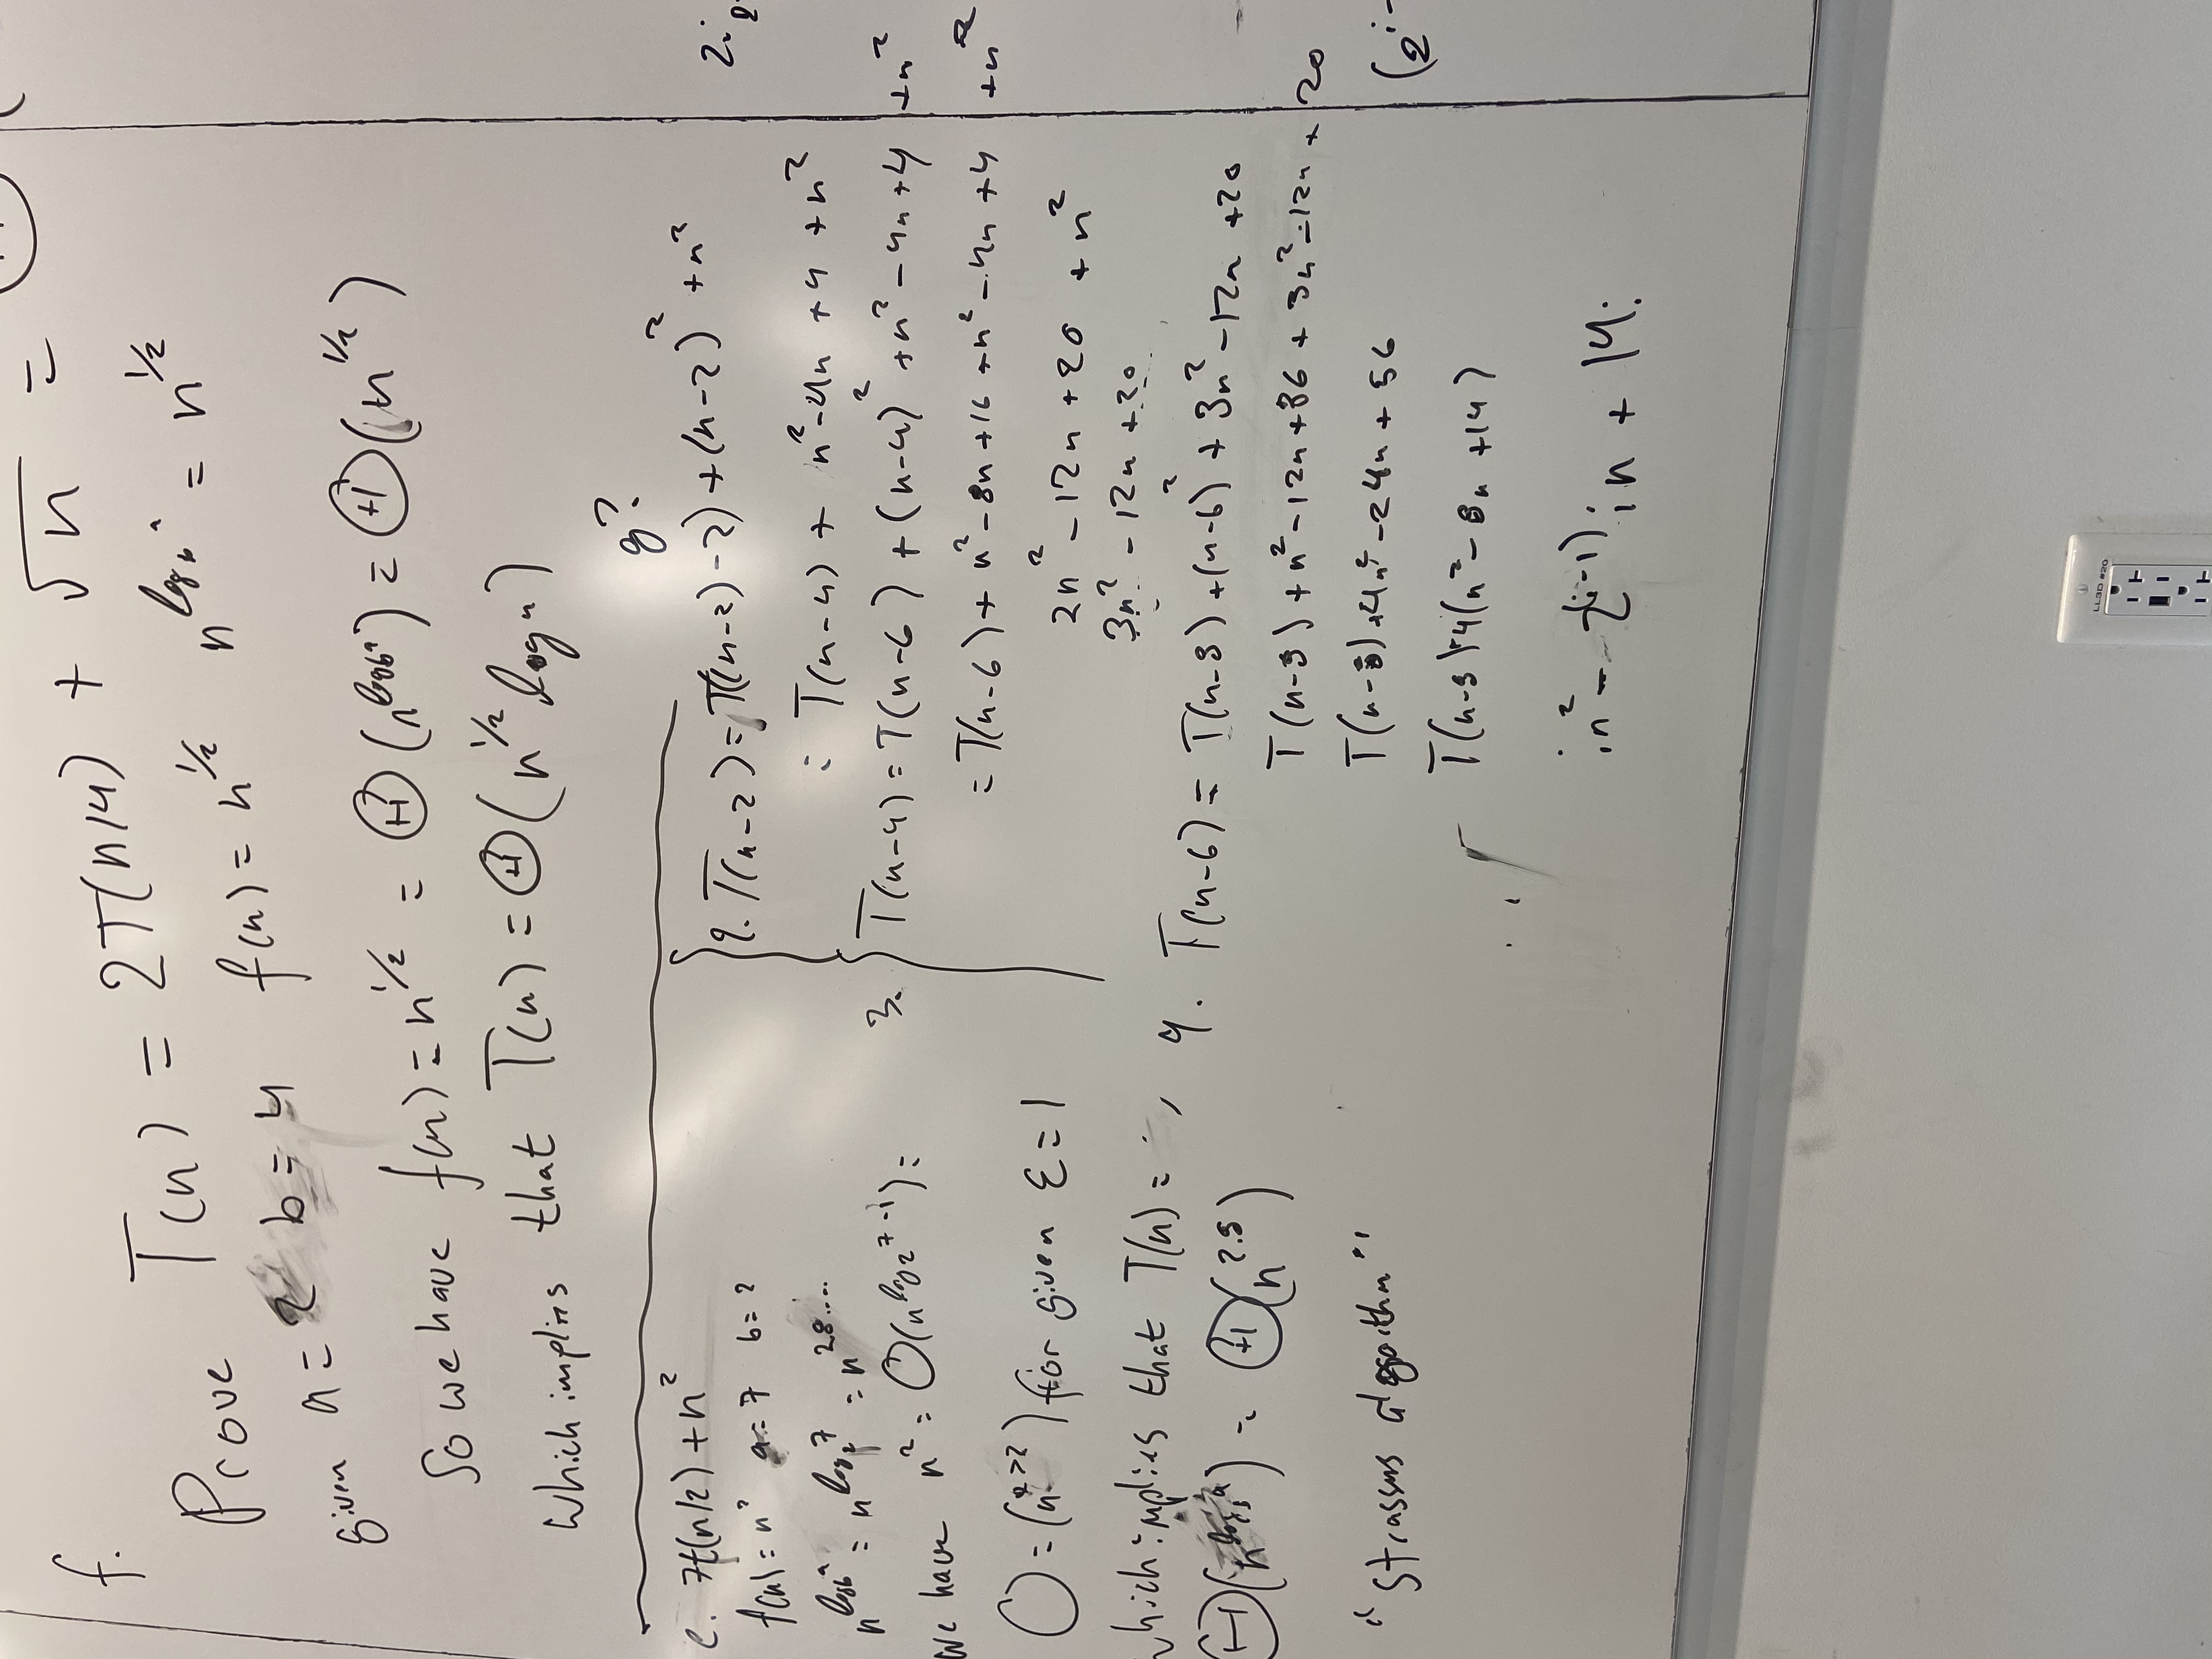 f. T(n) = 2T(n/4) + √n =
Prove
given a=2 b=4 f(n)=n^1/2 n^log_b^a = n^1/2
So we have f(n)=n^1/2 = Ⓗ(n^log_b^a) = Ⓗ(n^1/2)
which implies that T(n) = Ⓗ(n^1/2 log n)
e. 7t(n/2)+n²
f(n)=n² a=7 b=2
n^log_b^a = n^log_2^7 = n^2.8....
we have n² = O(n^log_2^7-1) =
for given ε=1
which implies that T(n) =
= Ⓗ(n^2.8)
"strassens algorithm"
g?
2. T(n-2)=T((n-2)-2)+(n-2)²+n²
= T(n-4) + n²-4n+4+n²
3. T(n-4)=T(n-6)+(n-4)²+n²-4n+4 +n²
=T(n-6)+n²-8n+16+n²-4n+4 +n²
2n²-12n+20 +n²
3n²-12n+20
4. T(n-6)= T(n-8)+(n-6)²+3n²-12n+20
T(n-8)+n²-12n+36+3n²-12n+20
T(n-8)+4n²-24n+56
T(n-8)+4(n²-8n+14)
in²- (i-1)in + 14i
2i
(2i-
LL3D #20